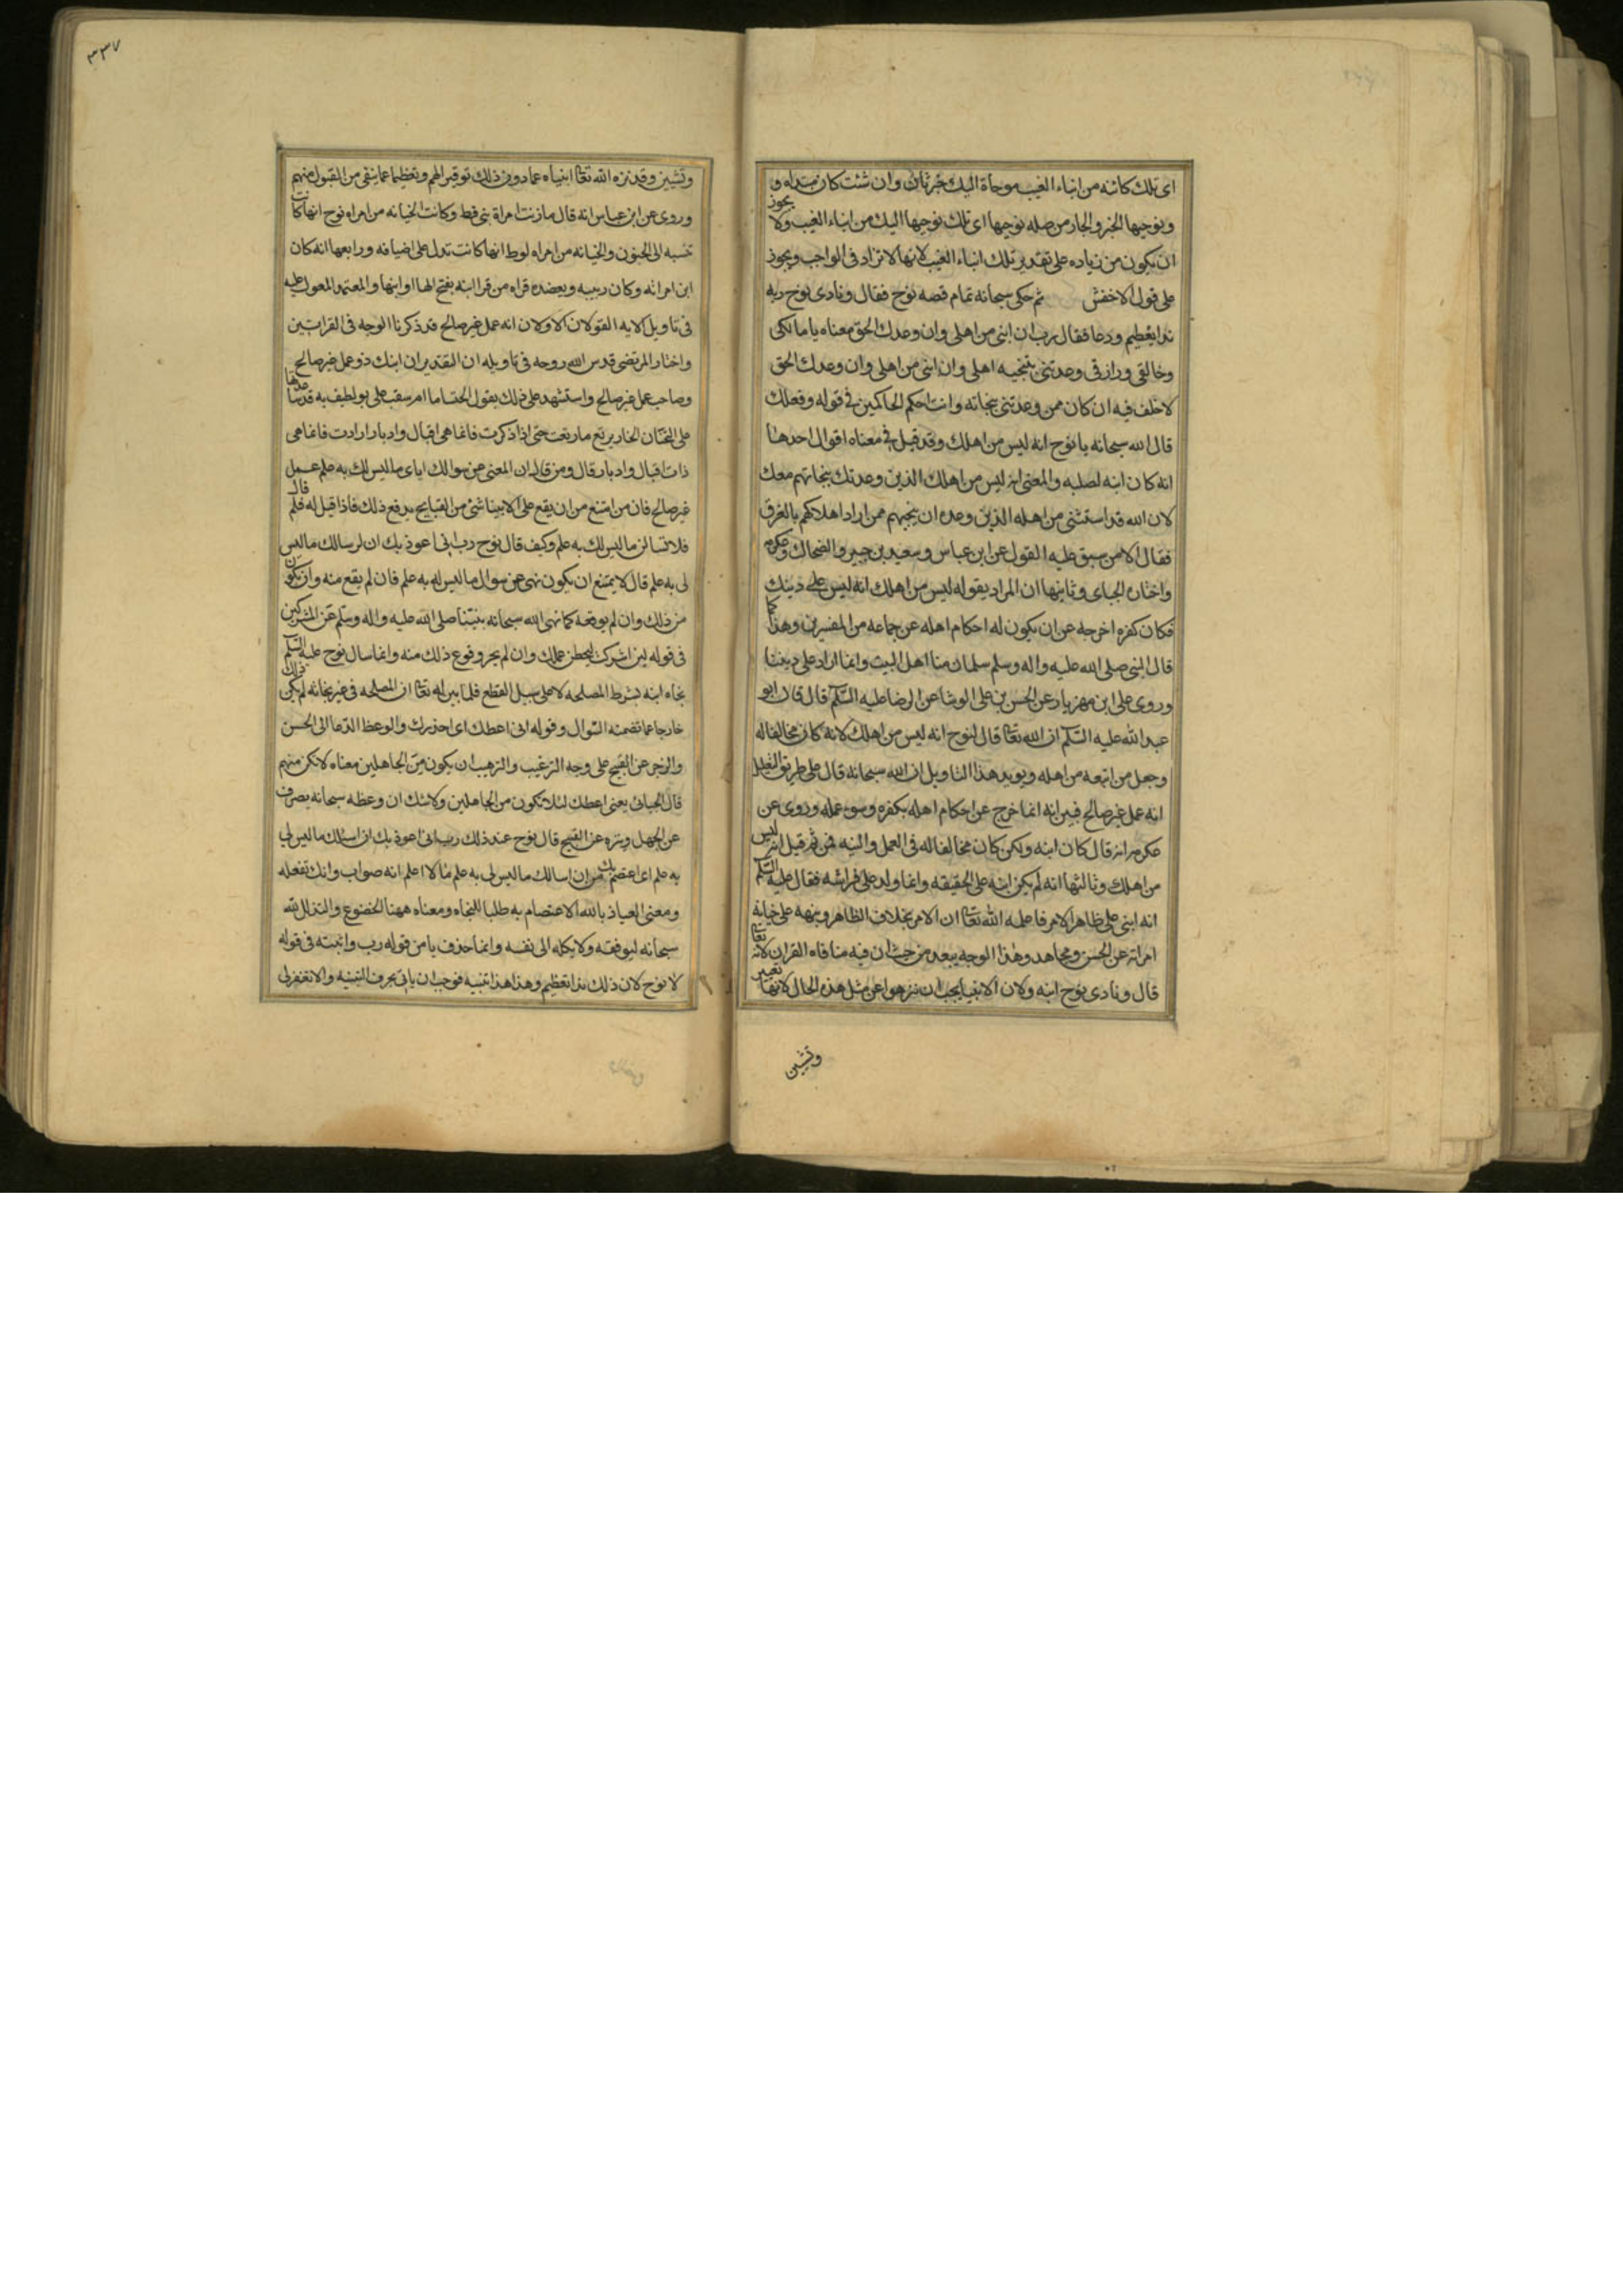 اى تلك كائنه من انباء الغيب موحاة اليك خبر ثان وان شئت كان مبتداه و
ونوحيها الخبر والجار من صله نوحيها اى تلك نوحيها اليك من انباء الغيب ولا يجوز
ان يكون من زياده على تقدير تلك انباء الغيب لانها لا تزاد فى الواجب ويجوز
على قول الاخفش ثم حكى سبحانه تمام قصه نوح فقال ونادى نوح ربه
ندا تعظيم ودعا فقال رب ان ابنى من اهلى وان وعدك الحق معناه يا مالكى
وخالقى ورازقى وعدتنى بتنجيه اهلى وان ابنى من اهلى وان وعدك الحق
لا خلف فيه ان كان ممن وعدتنى بنجاته وانت احكم الحاكمين فى قوله وفعلك
قال الله سبحانه يا نوح انه ليس من اهلك وقد قيل فى معناه اقوال احدها
انه كان ابنه لصلبه والمعنى انه ليس من اهلك الذين وعدتك بنجاتهم معك
لان الله قد استثنى من اهله الذين وعده ان ينجيهم ممن اراد اهلاكهم بالغرق
فقال الا من سبق عليه القول عن ابن عباس وسعيد بن جبير والضحاك وعكرمه
واختاره الجباى وثانيها ان المراد بقوله ليس من اهلك انه ليس على دينك
فكان كفره اخرجه عن ان يكون له احكام اهله عن جماعه من المفسرين وهذا كما
قال النبى صلى الله عليه واله وسلم سلمان منا اهل البيت وانما اراد على ديننا
وروى على ابن مهزيار عن الحسن بن على الوشا عن الرضا عليه السلم قال قال ابو
عبد الله عليه السلم ان الله تعا قال لنوح انه ليس من اهلك لانه كان مخالفا له
وجعل من اتبعه من اهله ويويد هذا التاويل ان الله سبحانه قال على طريق التعليل
انه عمل غير صالح فبين انه انما خرج عن احكام اهله بكفره وسوء عمله وروى عن
عكرمه انه قال كان ابنه ولكن كان مخالفا له فى العمل والنيه فمن ثم قيل انه ليس
من اهلك وثالثها انه لم يكن ابنه على الحقيقه وانما ولد على فراشه فقال عليه السلم
انه ابنى على ظاهر الامر فاعلمه الله تعا ان الامر بخلاف الظاهر ونبهه على خيانه
امراته عن الحسن ومجاهد وهذا الوجه يبعد من حيث ان فيه منافاه القران لانه تعا
قال ونادى نوح ابنه ولان الانبيا يجب ان ينزهوا عن مثل هذه الحال لانها تعير
وتشين
٣٣٧
وتشين وقد نزه الله تعا انبياه عما دون ذلك توقيرا لهم وتعظيما عما ينفى من القبول منهم
وروى عن ابن عباس انه قال ما زنت امراة نبى قط وكانت الخيانه من امراه نوح انها كانت
تنسبه الى الجنون والخيانه من امراه لوط انها كانت تدل على اضيافه ورابعها انه كان
ابن امراته وكان ربيبه ويعضده قراه من قرا ابنه بفتح الها او ابنها والمعتمد المعول عليه
فى تاويل الايه القولان الاولان انه عمل غير صالح قد ذكرنا الوجه فى القراتين
واختار المرتضى قدس الله روحه فى تاويله ان التقدير ان ابنك ذو عمل غير صالح
وصاحب عمل غير صالح واستشهد على ذلك بقول الخنسا ما ام سقب على بو تطيف به قد ساعدتها
على التحنان اظار ترتع ما رتعت حتى اذا ذكرت فانما هى اقبال وادبار ارادت فانما هى
ذات اقبال وادبار قال ومن قال ان المعنى ان سوالك اياى ما ليس لك به علم عمل
غير صالح فان من امتنع من ان يقع على الانبيا شئ من القبايح يدفع ذلك فاذا قيل له فلم قال
فلا تسالن ما ليس لك به علم وكيف قال نوح رب انى اعوذ بك ان اسالك ما ليس
لى به علم قال لا يمتنع ان يكون نهى عن سوال ما ليس له به علم فان لم يقع منه وان يكون
من ذلك وان لم يوقعه كما نهى الله سبحانه نبينا صلى الله عليه واله وسلم عن الشرك
فى قوله لين اشركت ليحبطن عملك وان لم يجر وقوع ذلك منه وانما سال نوح عليه السلم
نجاه ابنه بشرط المصلحه لا على سبيل القطع فلما بين له تعا ان المصلحه فى غير نجاته لم يكن ذلك
خارجا عما تضمنه السوال وقوله انى اعظك اى احذرك والوعظ الدعا الى الحسن
والزجر عن القبيح على وجه الترغيب والترهيب ان يكون من الجاهلين معناه لا تكن منهم
قال الجبائى يعنى اعظك لئلا تكون من الجاهلين ولا شك ان وعظه سبحانه يصرف
عن الجهل وينزه عن القبيح قال نوح عند ذلك رب انى اعوذ بك ان اسئلك ما ليس لى
به علم اى اعتصم بك من ان اسالك ما ليس لى به علم ما لا اعلم انه صواب وانك تفعله
ومعنى العياذ بالله الاعتصام به طلبا للنجاه ومعناه ههنا الخضوع والتذلل لله
سبحانه ليوفقه ولا يكله الى نفسه وانما حذف يا من قوله رب واثبته فى قوله
لا نوح لان ذلك ندا تعظيم وهذا هذا تنبيه فوجب ان ياتى بحرف التنبيه والا تغفر لى